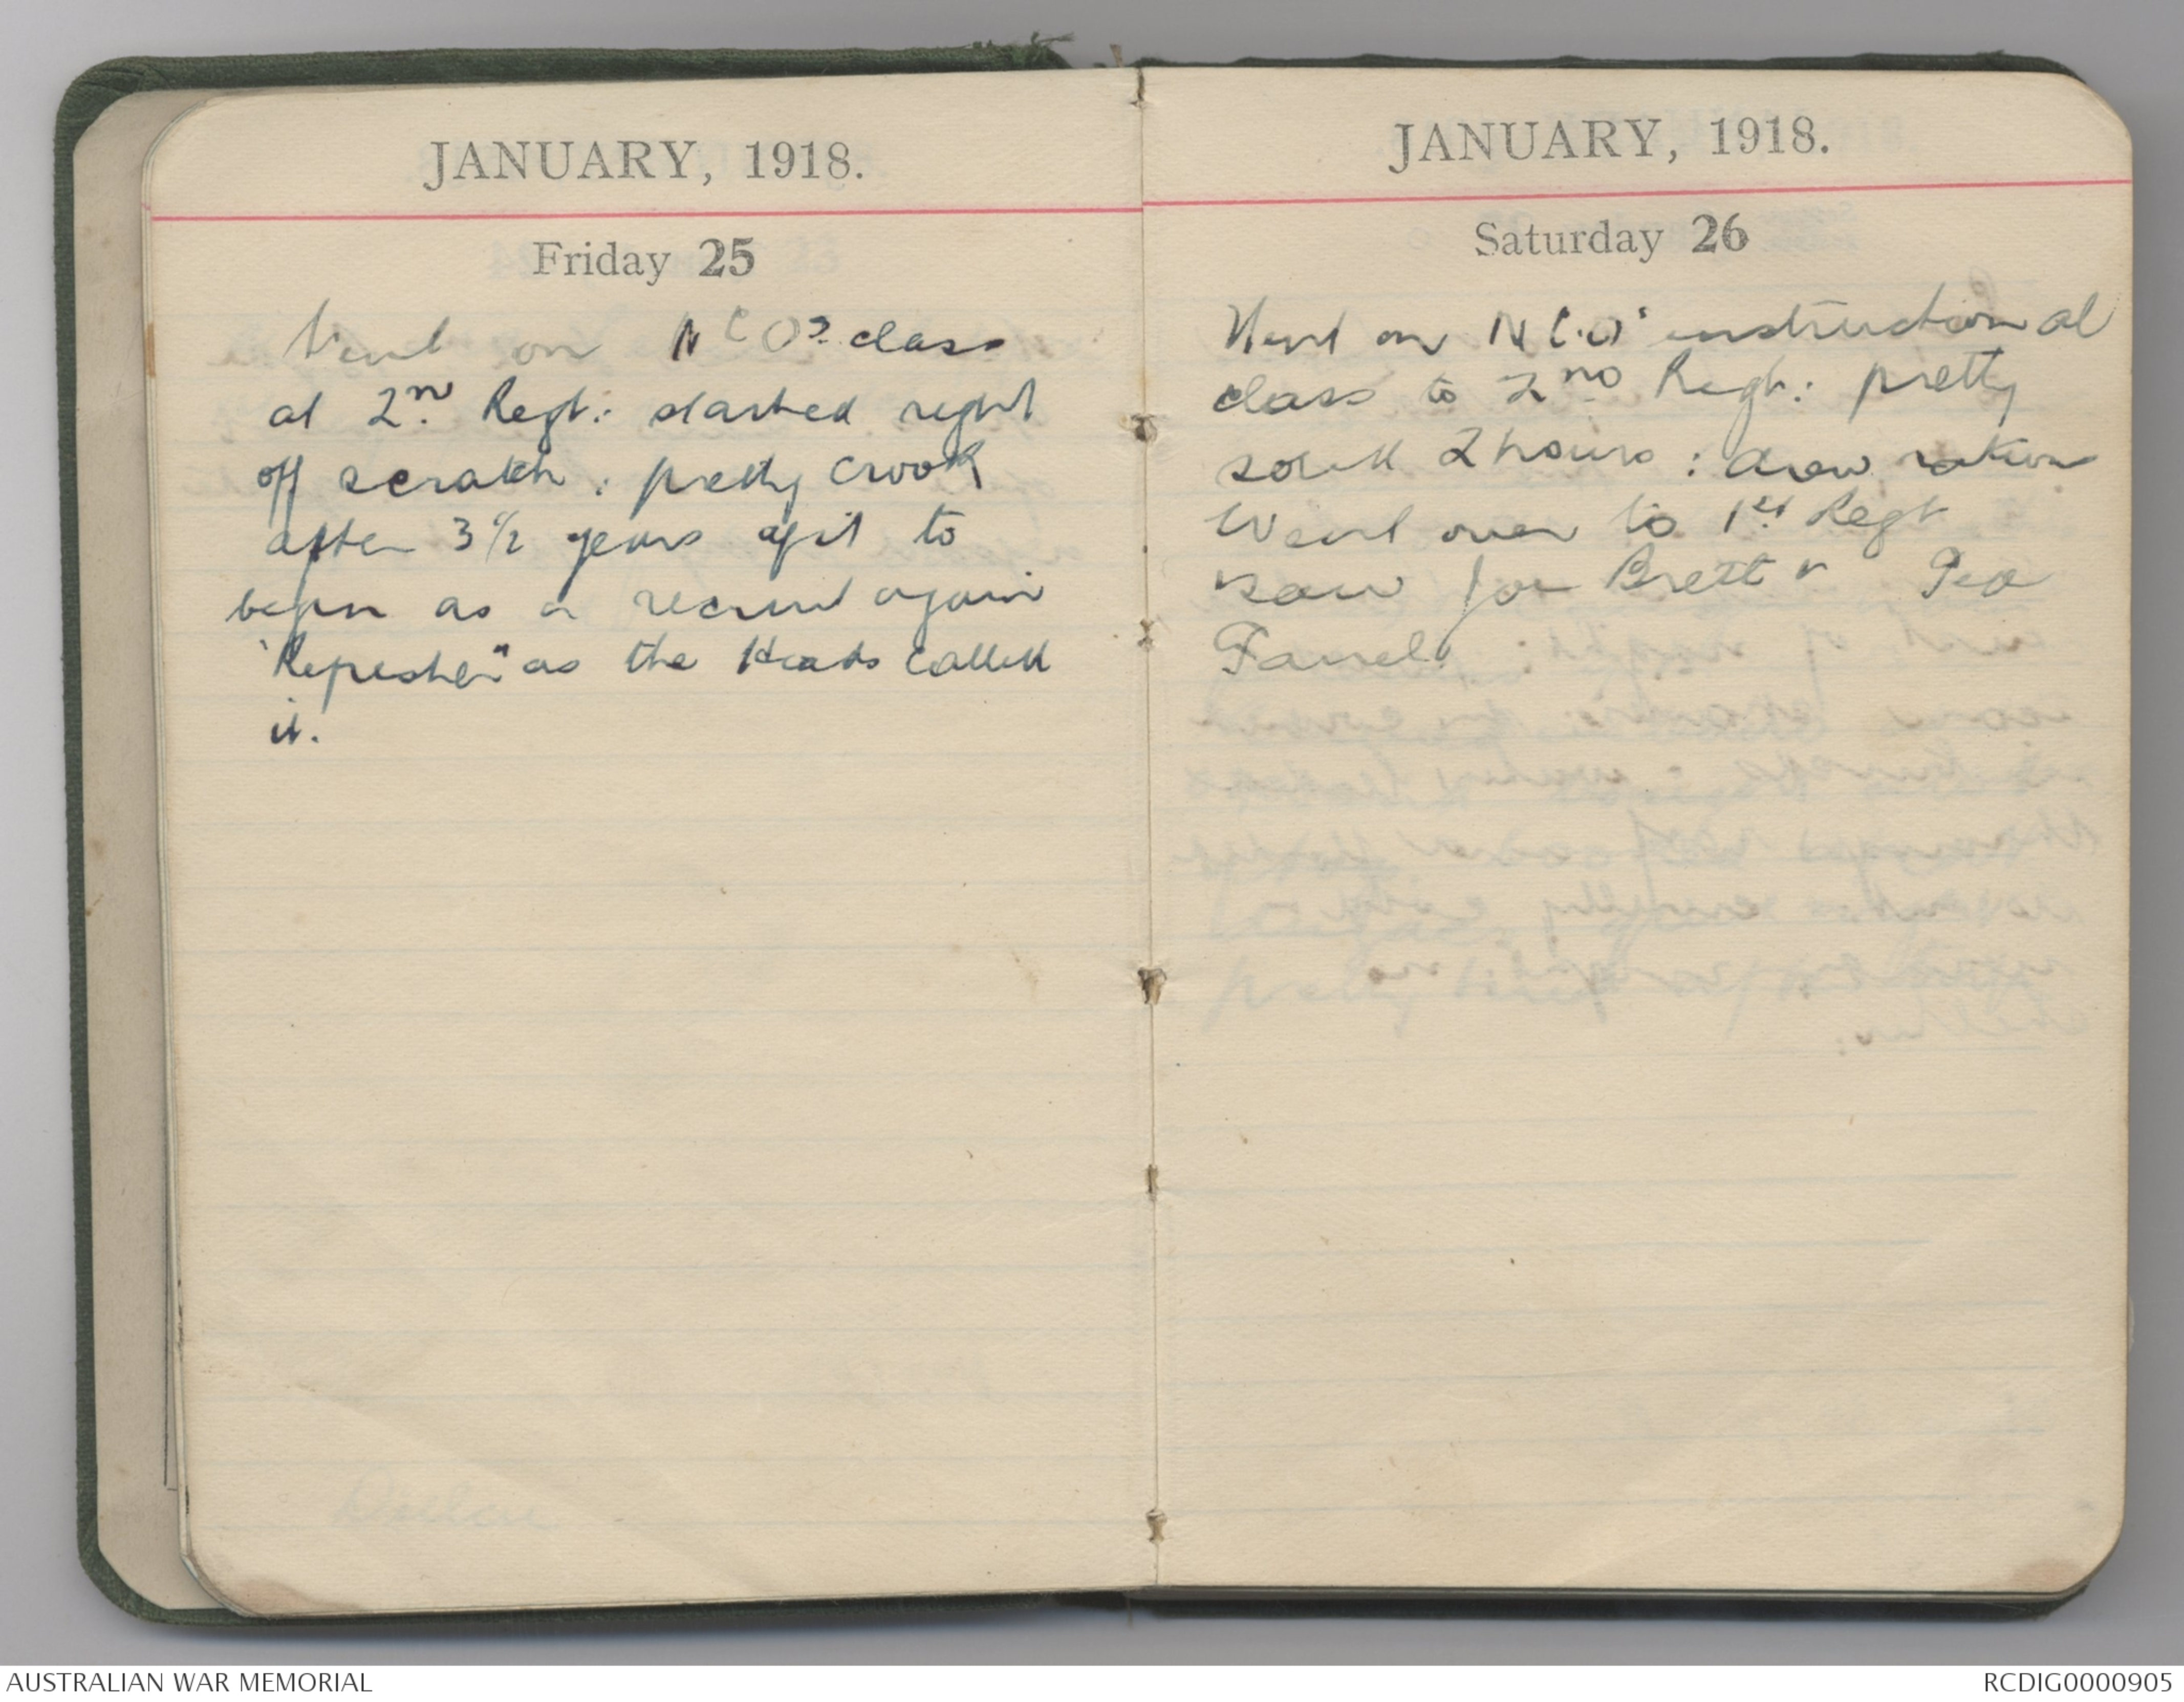 JANUARY, 1918.
Friday 25
Went on N C Os class
at 2nd Regt: started right
off scratch: pretty crook
after 3 1/2 years to
begin as a recruit again
"Refresher" as the Heads called
it.
JANUARY, 1918.
Saturday 26
Went on N C.O's instructional
class to 2nd Regt: pretty
solid 2 hours: drew rations
Went over to 1st Regt
saw Joe Brett & Geo
AUSTRALIAN WAR MEMORIAL
RCDIG0000905